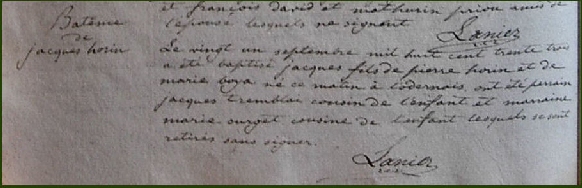 et françois david et mathurin priou amis de
l'epouse lesquels ne signent
Lanier
Bateme
de
jacques horin
Le vingt un septembre mil huit cent trente trois
a été baptisé jacques fils de pierre horin et de
marie boya ne ce matin à ont été perrain
jacques tremblai cousin de l'enfant et marraine
marie surget cousine de l'enfant lesquels se sont
retirés sans signer.
Lanier